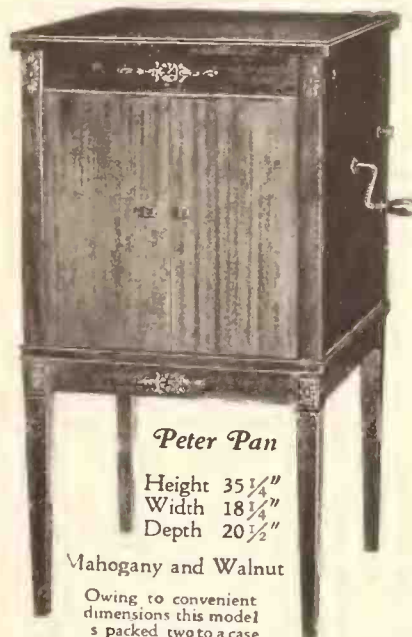 Peter Pan
Height 35 1/4"
Width 18 1/4"
Depth 20 1/2"
Mahogany and Walnut
Owing to convenient
dimensions this model
s packed two to a case